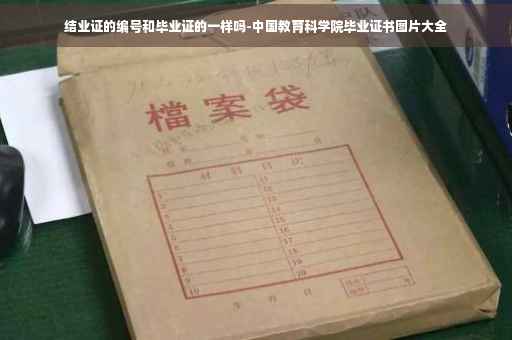 结业证的编号和毕业证的一样吗-中国教育科学院毕业证书图片大全
檔案袋
材料目次
1 11
2 12
3 13
4 14
5 15
6 16
7 17
8 18
9 19
10 20
年 月 日